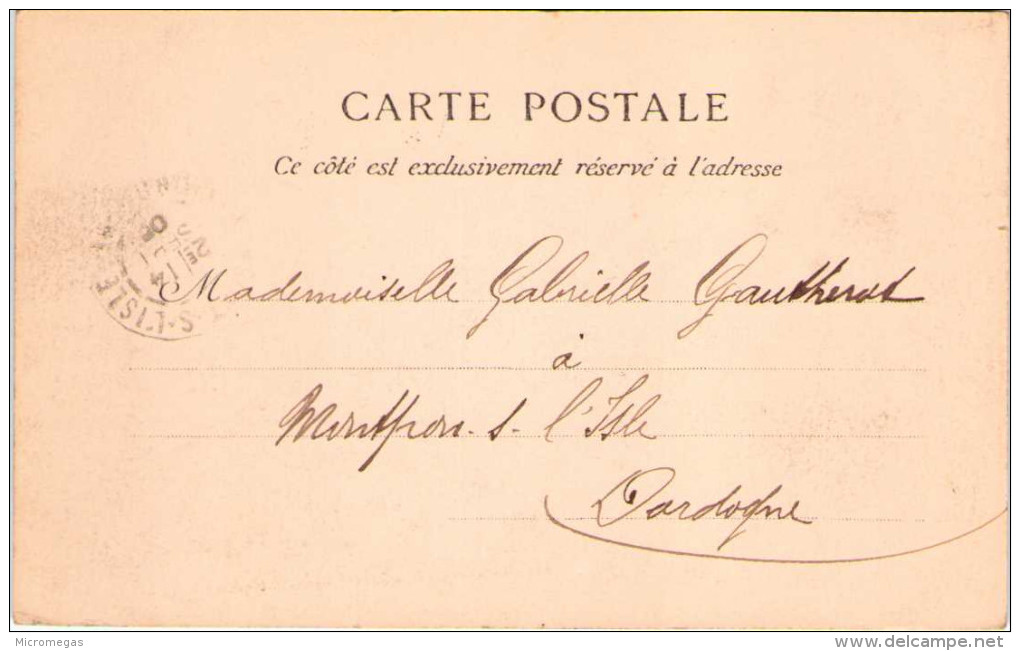 CARTE POSTALE
Ce côté est exclusivement réservé à l'adresse
S-L'ISLE
Mademoiselle Gabrielle Gautherot
à
Montpon-s-l'Isle
Dordogne
Micromegas
www.delcampe.net